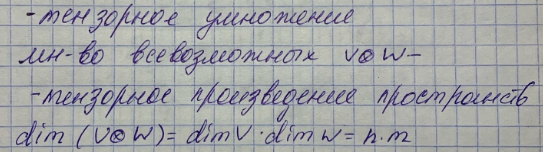 -тензорное умножение
мн-во всевозможных V⊗W-
-тензорное произведение пространств
dim (V⊗W)= dimV·dimW= n·m